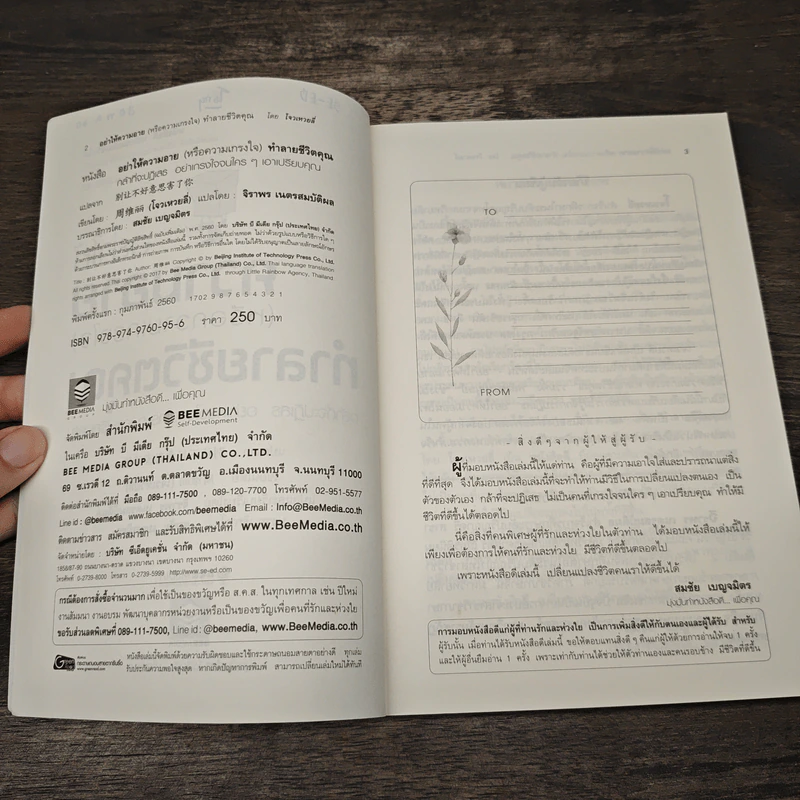 2 อย่าให้ความอาย (หรือความเกรงใจ) ทำลายชีวิตคุณ โดย โจวเหวยลี่
หนังสือ อย่าให้ความอาย (หรือความเกรงใจ) ทำลายชีวิตคุณ
กล้าที่จะปฏิเสธ อย่าเกรงใจจนใคร ๆ เอาเปรียบคุณ
แปลจาก 别让不好意思害了你
เขียนโดย : 周维丽 (โจวเหวยลี่) แปลโดย : จิราพร เนตรสมบัติผล
บรรณาธิการโดย : สมชัย เบญจมิตร
Title : 别让不好意思害了你 Author: 周维丽 Copyright © by Beijing Institute of Technology Press Co., Ltd. Thai language translation
All rights reserved. Thai copyright © 2017 by Bee Media Group (Thailand) Co., Ltd. through Little Rainbow Agency, Thailand
rights arranged with Beijing Institute of Technology Press Co., Ltd.
พิมพ์ครั้งแรก : กุมภาพันธ์ 2560 1702 9 8 7 6 5 4 3 2 1
ISBN 978-974-9760-95-6 ราคา 250 บาท
BEE MEDIA
GROUP
มุ่งมั่นทำหนังสือดี... เพื่อคุณ
จัดพิมพ์โดย สำนักพิมพ์ BEE MEDIA
Self-Development
ในเครือ บริษัท บี มีเดีย กรุ๊ป (ประเทศไทย) จำกัด
BEE MEDIA GROUP (THAILAND) CO.,LTD.
69 ซ.เรวดี 12 ถ.ติวานนท์ ต.ตลาดขวัญ อ.เมืองนนทบุรี จ.นนทบุรี 11000
ติดต่อสำนักพิมพ์ได้ที่ มือถือ 089-111-7500 , 089-120-7700 โทรศัพท์ 02-951-5577
Line id : @beemedia www.facebook.com/beemedia Email : Info@BeeMedia.co.th
ติดตามข่าวสาร สมัครสมาชิก และรับสิทธิพิเศษได้ที่ www.BeeMedia.co.th
จัดจำหน่ายโดย : บริษัท ซีเอ็ดยูเคชั่น จำกัด (มหาชน)
1858/87-90 ถนนบางนา-ตราด แขวงบางนา เขตบางนา กรุงเทพฯ 10260
โทรศัพท์ 0-2739-8000 โทรสาร 0-2739-5999 http://www.se-ed.com
กรณีต้องการสั่งซื้อจำนวนมาก เพื่อใช้เป็นของขวัญหรือ ส.ค.ส. ในทุกเทศกาล เช่น ปีใหม่
งานสัมมนา งานอบรม พัฒนาบุคลากรหน่วยงานหรือเป็นของขวัญเพื่อคนที่รักและห่วงใย
ขอรับส่วนลดพิเศษที่ 089-111-7500, Line id : @beemedia, www.BeeMedia.co.th
หนังสือเล่มนี้จัดพิมพ์ด้วยความรับผิดชอบและใช้กระดาษถนอมสายตาอย่างดี ทุกเล่ม
รับประกันความพอใจสูงสุด หากเกิดปัญหาการพิมพ์ สามารถเปลี่ยนเล่มใหม่ได้ทันที
3
TO
FROM
- สิ่งดีๆจากผู้ให้สู่ผู้รับ -
ผู้ที่มอบหนังสือเล่มนี้ให้แด่ท่าน คือผู้ที่มีความเอาใจใส่และปรารถนาแต่สิ่ง
ที่ดีที่สุด จึงได้มอบหนังสือเล่มนี้ที่จะทำให้ท่านมีวิธีในการเปลี่ยนแปลงตนเอง เป็น
ตัวของตัวเอง กล้าที่จะปฏิเสธ ไม่เป็นคนที่เกรงใจจนใคร ๆ เอาเปรียบคุณ ทำให้มี
ชีวิตที่ดีขึ้นได้ตลอดไป
นี่คือสิ่งที่คนพิเศษผู้ที่รักและห่วงใยในตัวท่าน ได้มอบหนังสือเล่มนี้ให้
เพียงเพื่อต้องการให้คนที่รักและห่วงใย มีชีวิตที่ดีขึ้นตลอดไป
เพราะหนังสือดีเล่มนี้ เปลี่ยนแปลงชีวิตคนเราให้ดีขึ้นได้
สมชัย เบญจมิตร
มุ่งมั่นทำหนังสือดี... เพื่อคุณ
การมอบหนังสือดีแก่ผู้ที่ท่านรักและห่วงใย เป็นการเพิ่มสิ่งดีให้กับตนเองและผู้ได้รับ สำหรับ
ผู้รับนั้น เมื่อท่านได้รับหนังสือเล่มนี้ ขอให้ตอบแทนสิ่งดี ๆ คืนแก่ผู้ให้ด้วยการอ่านให้จบ 1 ครั้ง
และให้ผู้อื่นยืมอ่าน 1 ครั้ง เพราะเท่ากับท่านได้ช่วยให้ตัวท่านเองและคนรอบข้าง มีชีวิตที่ดีขึ้น